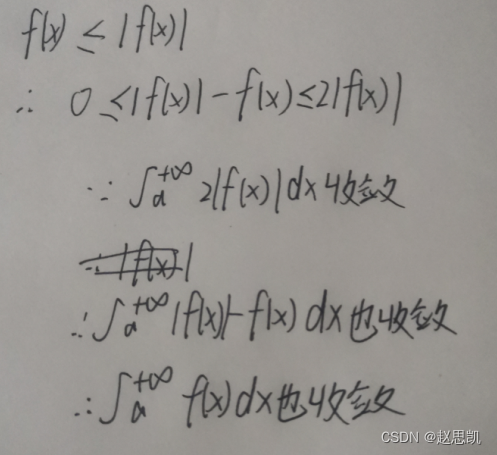 f(x) ≤ |f(x)|
∴ 0 ≤ |f(x)| - f(x) ≤ 2|f(x)|
∵ ∫ₐ⁺∞ 2|f(x)| dx 收敛
∴ |f(x)|
∴ ∫ₐ⁺∞ |f(x)| - f(x) dx 也收敛
∴ ∫ₐ⁺∞ f(x) dx 也收敛
CSDN @赵思凯